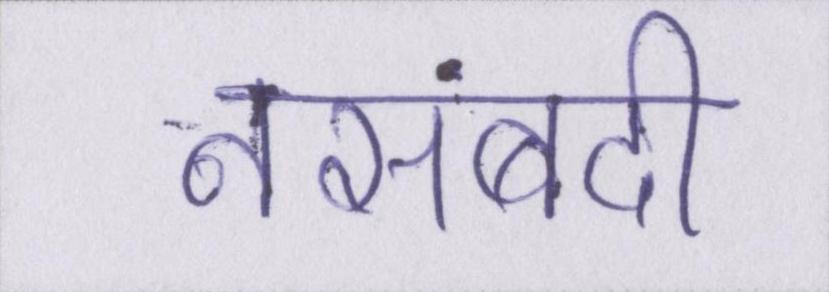 नसंबदी